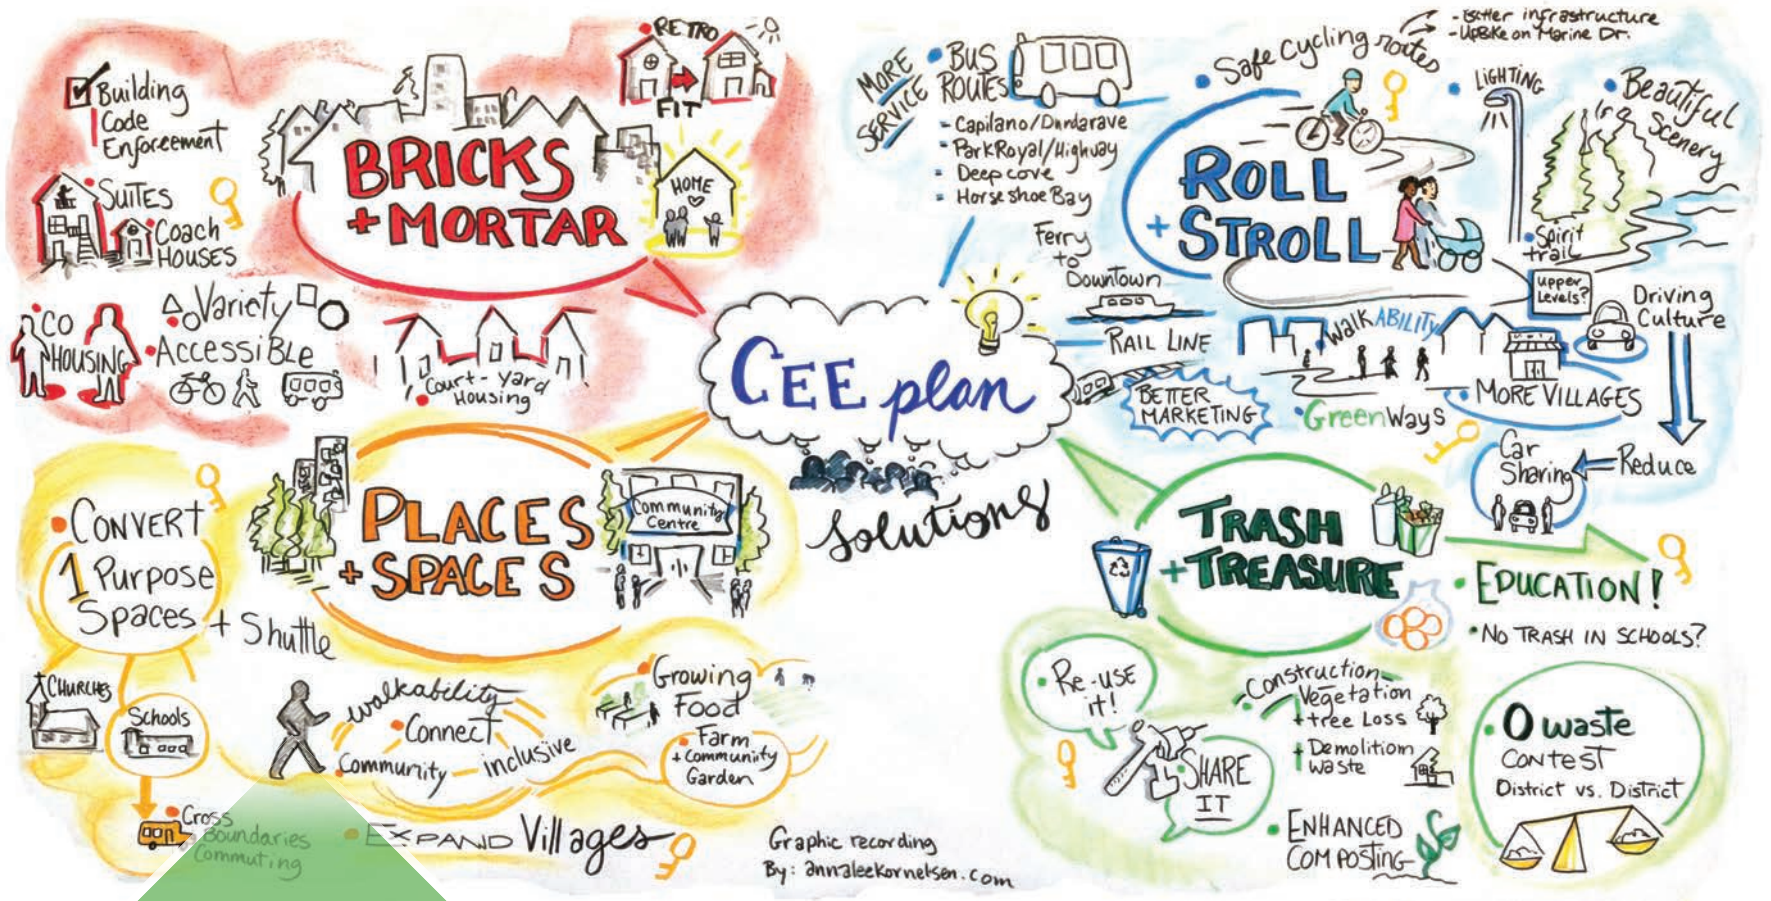 Building
Code
Enforcement
SUITES
Coach
HOUSES
CO
HOUSING
Variety
ACCESSIBLE
Court-Yard
Housing
RETRO
FIT
HOME
BRICKS
+ MORTAR
CEE plan
Solutions
MORE
SERVICE
BUS
ROUTES
- Capilano/Dundarave
- ParkRoyal/Highway
- Deep cove
- Horse Shoe Bay
Ferry
to
Downtown
RAIL LINE
BETTER
MARKETING
Safe Cycling routes
- Better infrastructure
- UpBike on Marine Dr.
LIGHTING
Beautiful
Scenery
ROLL
+ STROLL
Spirit
trail
upper
Levels?
Driving
Culture
WalkABILITY
MORE VILLAGES
GreenWays
Car
Sharing
Reduce
PLACES
+ SPACES
Community
Centre
CONVERT
1 Purpose
Spaces
+ Shuttle
CHURCHES
Schools
Cross
Boundaries
Commuting
walkability
Connect
Community
inclusive
Growing
Food
Farm
+ Community
Garden
EXPAND Villages
Graphic recording
By: annaleekornelsen.com
TRASH
+ TREASURE
EDUCATION!
NO TRASH IN SCHOOLS?
Re-USE
it!
SHARE
IT
Construction
Vegetation
+ tree Loss
+ Demolition
waste
ENHANCED
COMPOSTING
0 waste
CONTEST
District vs. District